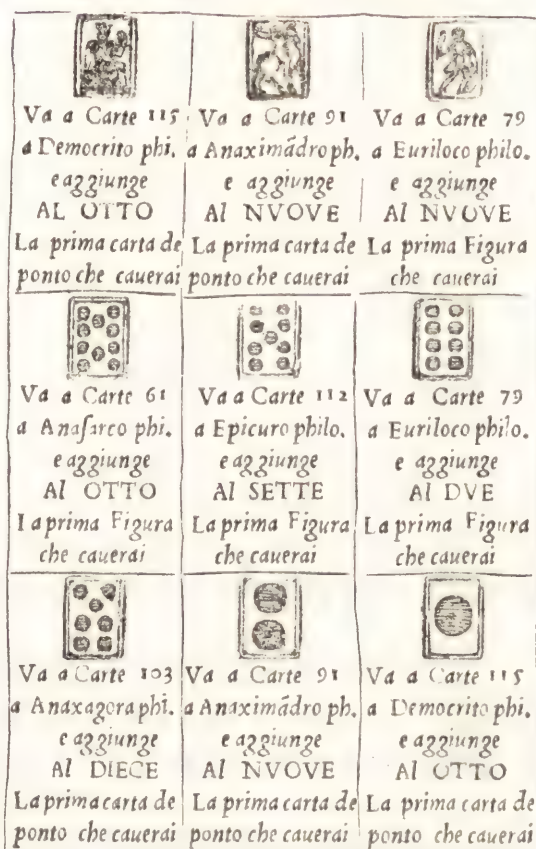 Va a Carte 115
a Democrito phi.
e aggiunge
AL OTTO
La prima carta de
ponto che cauerai
Va a Carte 91
a Anaximãdro ph.
e aggiunge
Al NVOVE
La prima carta de
ponto che cauerai
Va a Carte 79
a Euriloco philo.
e aggiunge
Al NVOVE
La prima Figura
che cauerai
Va a Carte 61
a Anaſarco phi.
e aggiunge
Al OTTO
La prima Figura
che cauerai
Va a Carte 112
a Epicuro philo.
e aggiunge
Al SETTE
La prima Figura
che cauerai
Va a Carte 79
a Euriloco philo.
e aggiunge
Al DVE
La prima Figura
che cauerai
Va a Carte 103
a Anaxagora phi.
e aggiunge
Al DIECE
La prima carta de
ponto che cauerai
Va a Carte 91
a Anaximãdro ph.
e aggiunge
Al NVOVE
La prima carta de
ponto che cauerai
Va a Carte 115
a Democrito phi.
e aggiunge
Al OTTO
La prima carta de
ponto che cauerai